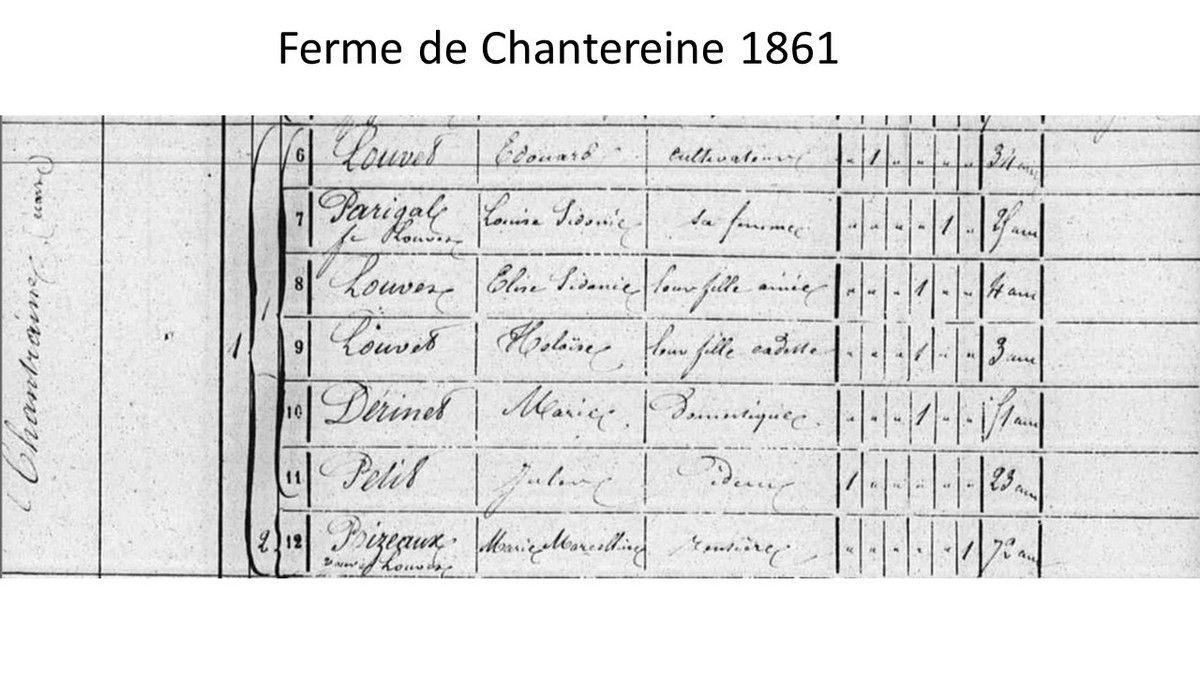 Ferme de Chantereine 1861
Chantraine
1
1
6 Louvet Edouard cultivateur " 1 " " " " 34 ans
7 Parigal Louise Sidonie sa femme " " " " 1 " ans
fe Louvet
8 Louvet Elise Sidonie leur fille ainée " " " 1 " " 4 ans
9 Louvet Héloïse leur fille cadette " " " 1 " " 3 ans
10 Derinet Marie Domestique " " " 1 " " 51 ans
11 Petit Jules 1 " " " " " 23 ans
2 12 Bizeaux Marie Marcelline rentière " " " " " 1 72 ans
veuve Louvet